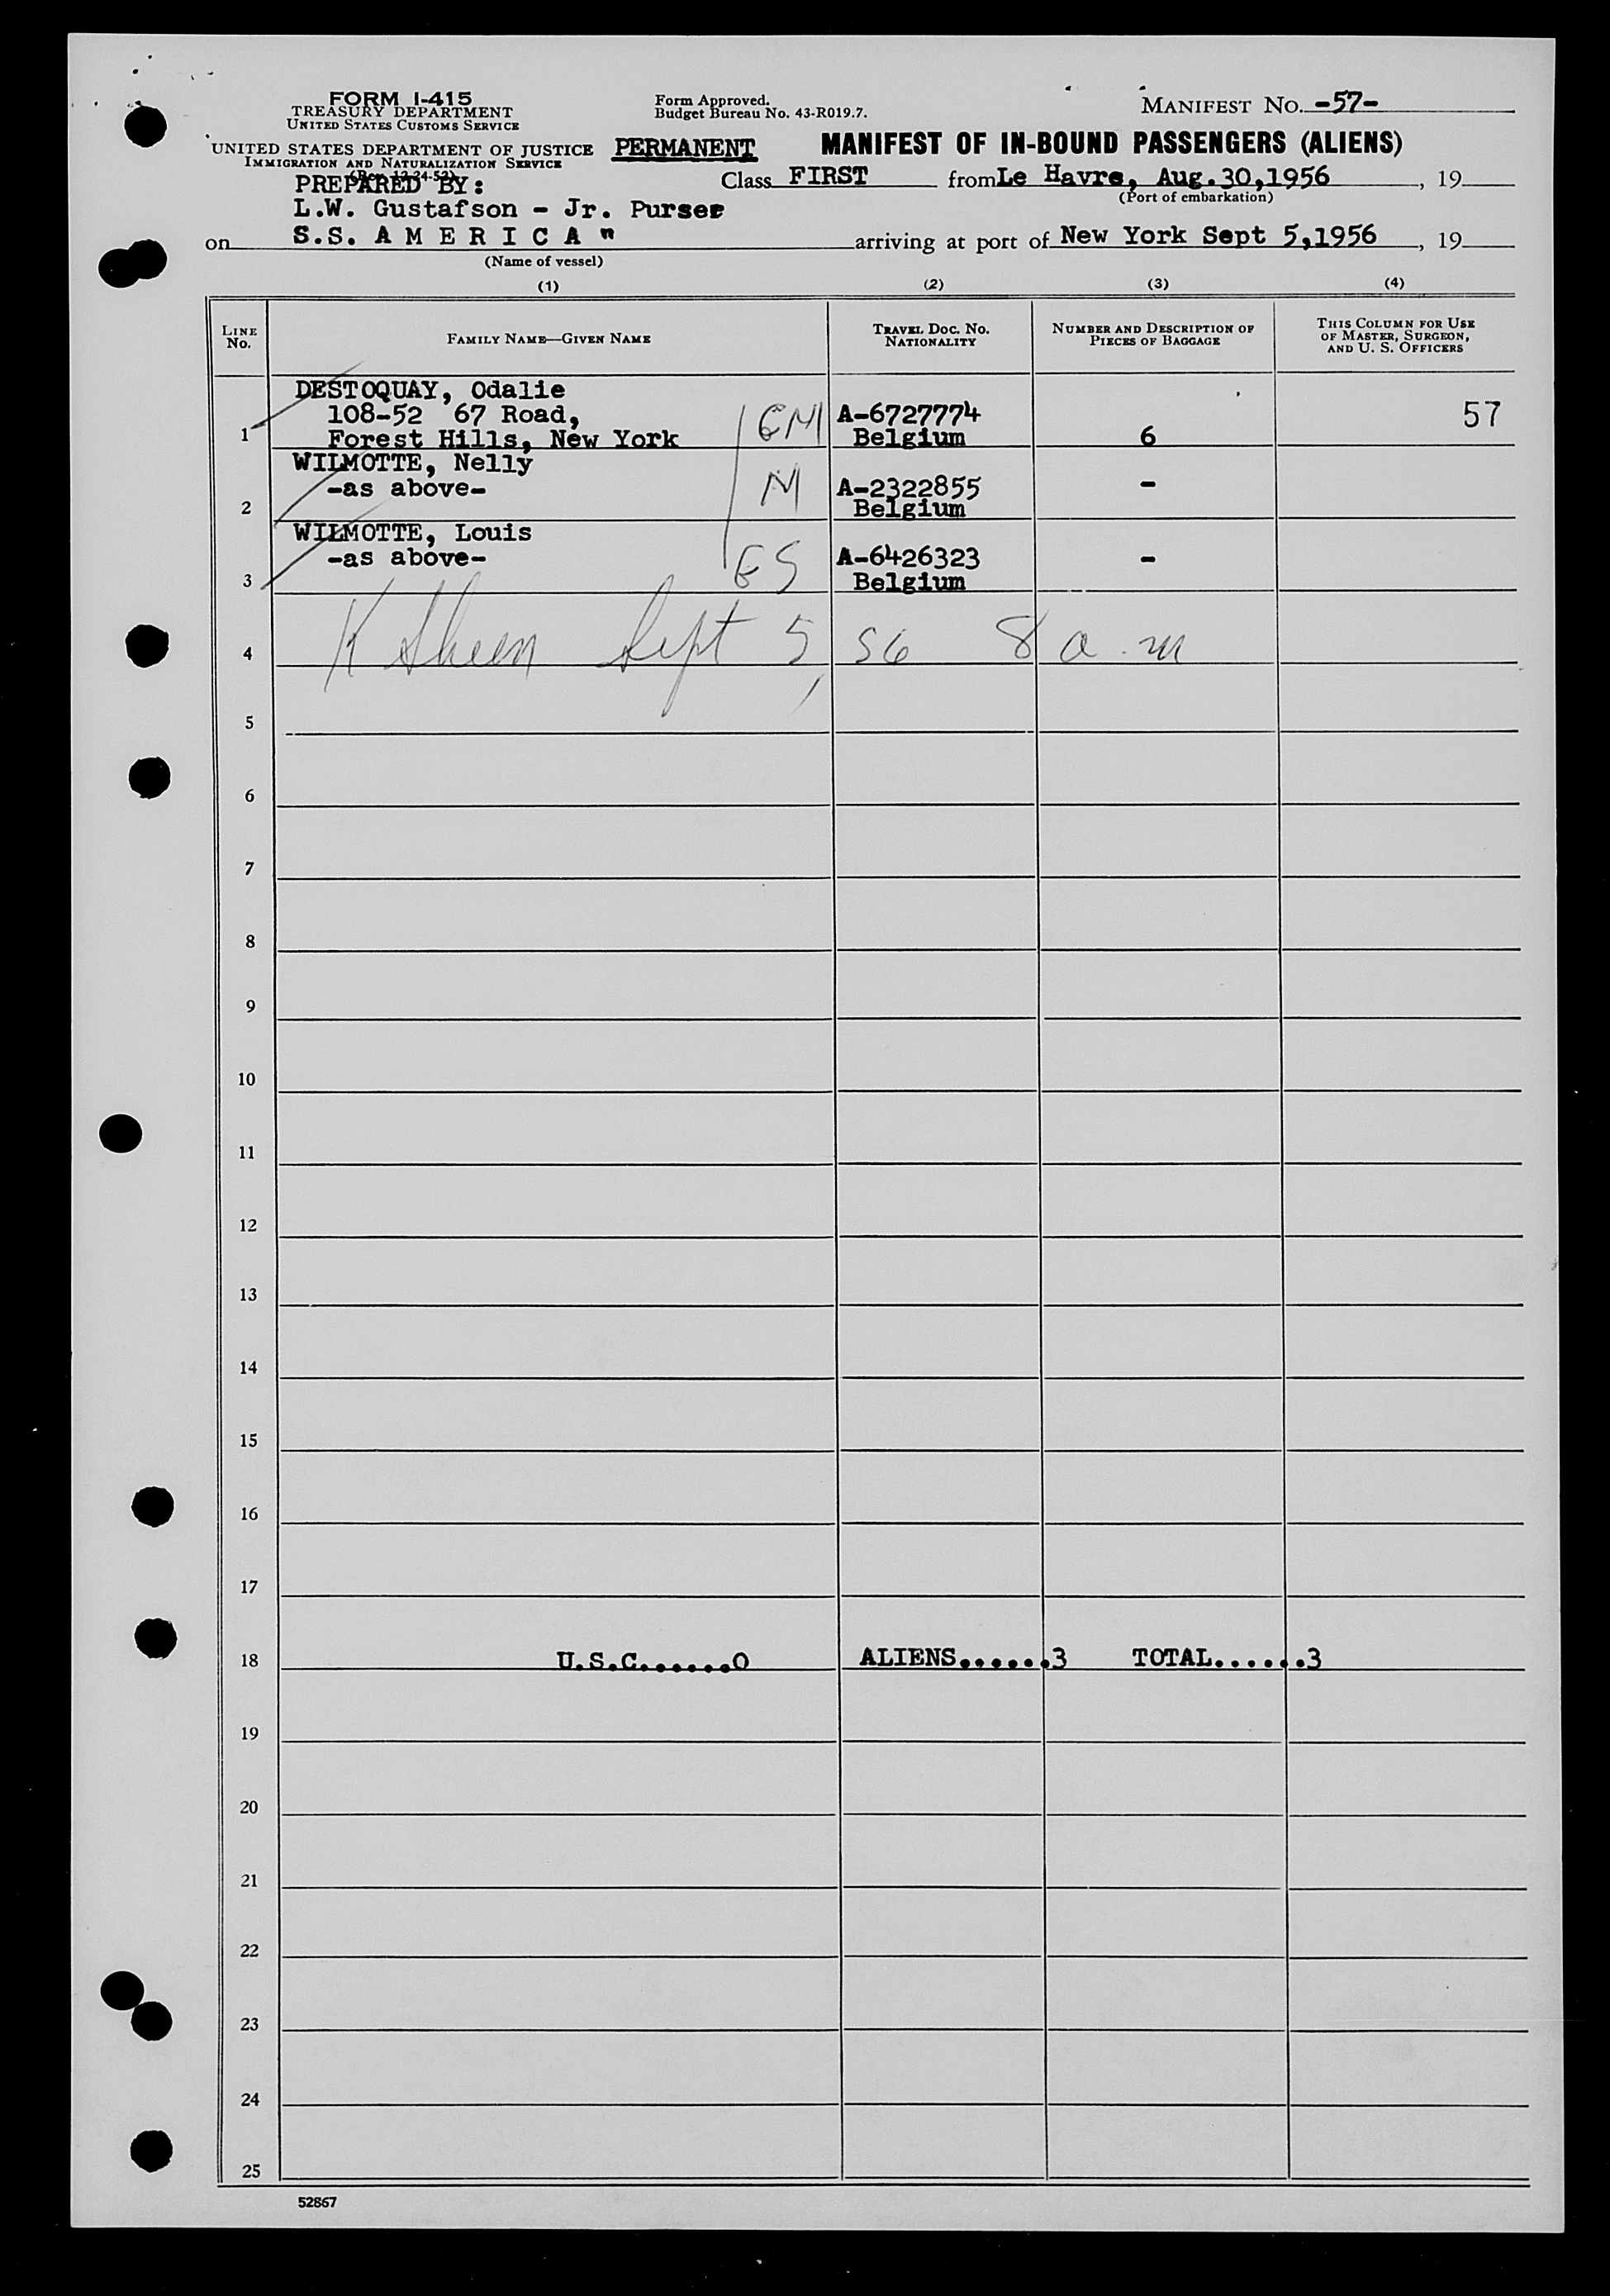 FORM I-415
TREASURY DEPARTMENT
UNITED STATES CUSTOMS SERVICE
UNITED STATES DEPARTMENT OF JUSTICE
IMMIGRATION AND NATURALIZATION SERVICE
(Rev. 12-24-52)
Form Approved.
Budget Bureau No. 43-R019.7.
MANIFEST NO. -57-
PERMANENT MANIFEST OF IN-BOUND PASSENGERS (ALIENS)
PREPARED BY:
L.W. Gustafson - Jr. Purser
Class FIRST from Le Havre, Aug.30,1956, 19
(Port of embarkation)
on S.S. A M E R I C A " arriving at port of New York Sept 5,1956, 19
(Name of vessel)
(1) (2) (3) (4)
LINE NO.
FAMILY NAME—GIVEN NAME
TRAVEL DOC. NO.
NATIONALITY
NUMBER AND DESCRIPTION OF
PIECES OF BAGGAGE
THIS COLUMN FOR USE
OF MASTER, SURGEON,
AND U. S. OFFICERS
DESTOQUAY, Odalie
108-52 67 Road, A-6727774 57
1 Forest Hills, New York Belgium 6
WILMOTTE, Nelly
-as above- M A-2322855 -
2 Belgium
WILMOTTE, Louis
-as above- ES A-6426323 -
3 Belgium
4 K Sheen Sept 5, 56 8 a.m
5
6
7
8
9
10
11
12
13
14
15
16
17
18 U.S.C......0 ALIENS......3 TOTAL......3
19
20
21
22
23
24
25
52867